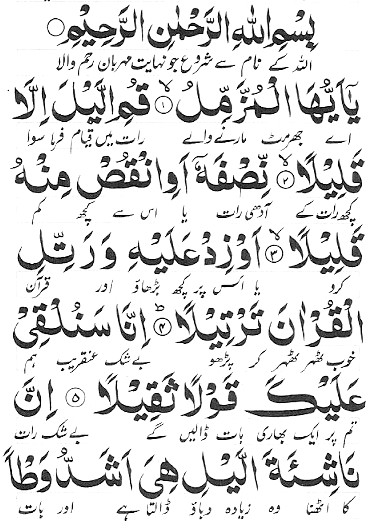 بِسْمِ اللهِ الرَّحْمٰنِ الرَّحِيْمِ ○
اللہ کے نام سے شروع جو نہایت مہربان رحم والا
يٰۤاَيُّهَا الْمُزَّمِّلُ ۙ﴿۱﴾ قُمِ الَّيْلَ اِلَّا
اے جھرمٹ مارنے والے رات میں قیام فرما سوا
قَلِيْلًا ۙ﴿۲﴾ نِّصْفَهٗۤ اَوِ انْقُصْ مِنْهُ
کچھ رات کے آدھی رات یا اس سے کچھ کم
قَلِيْلًا ۙ﴿۳﴾ اَوْ زِدْ عَلَيْهِ وَ رَتِّلِ
کرو یا اس پر کچھ بڑھاؤ اور قرآن
الْقُرْاٰنَ تَرْتِيْلًا ؕ﴿۴﴾ اِنَّا سَنُلْقِيْ
خوب ٹھہر ٹھہر کر پڑھو بے شک عنقریب ہم
عَلَيْكَ قَوْلًا ثَقِيْلًا ﴿۵﴾ اِنَّ
تم پر ایک بھاری بات ڈالیں گے بے شک رات
نَاشِئَةَ الَّيْلِ هِيَ اَشَدُّ وَطْاً
کا اٹھنا وہ زیادہ دباؤ ڈالتا ہے اور بات